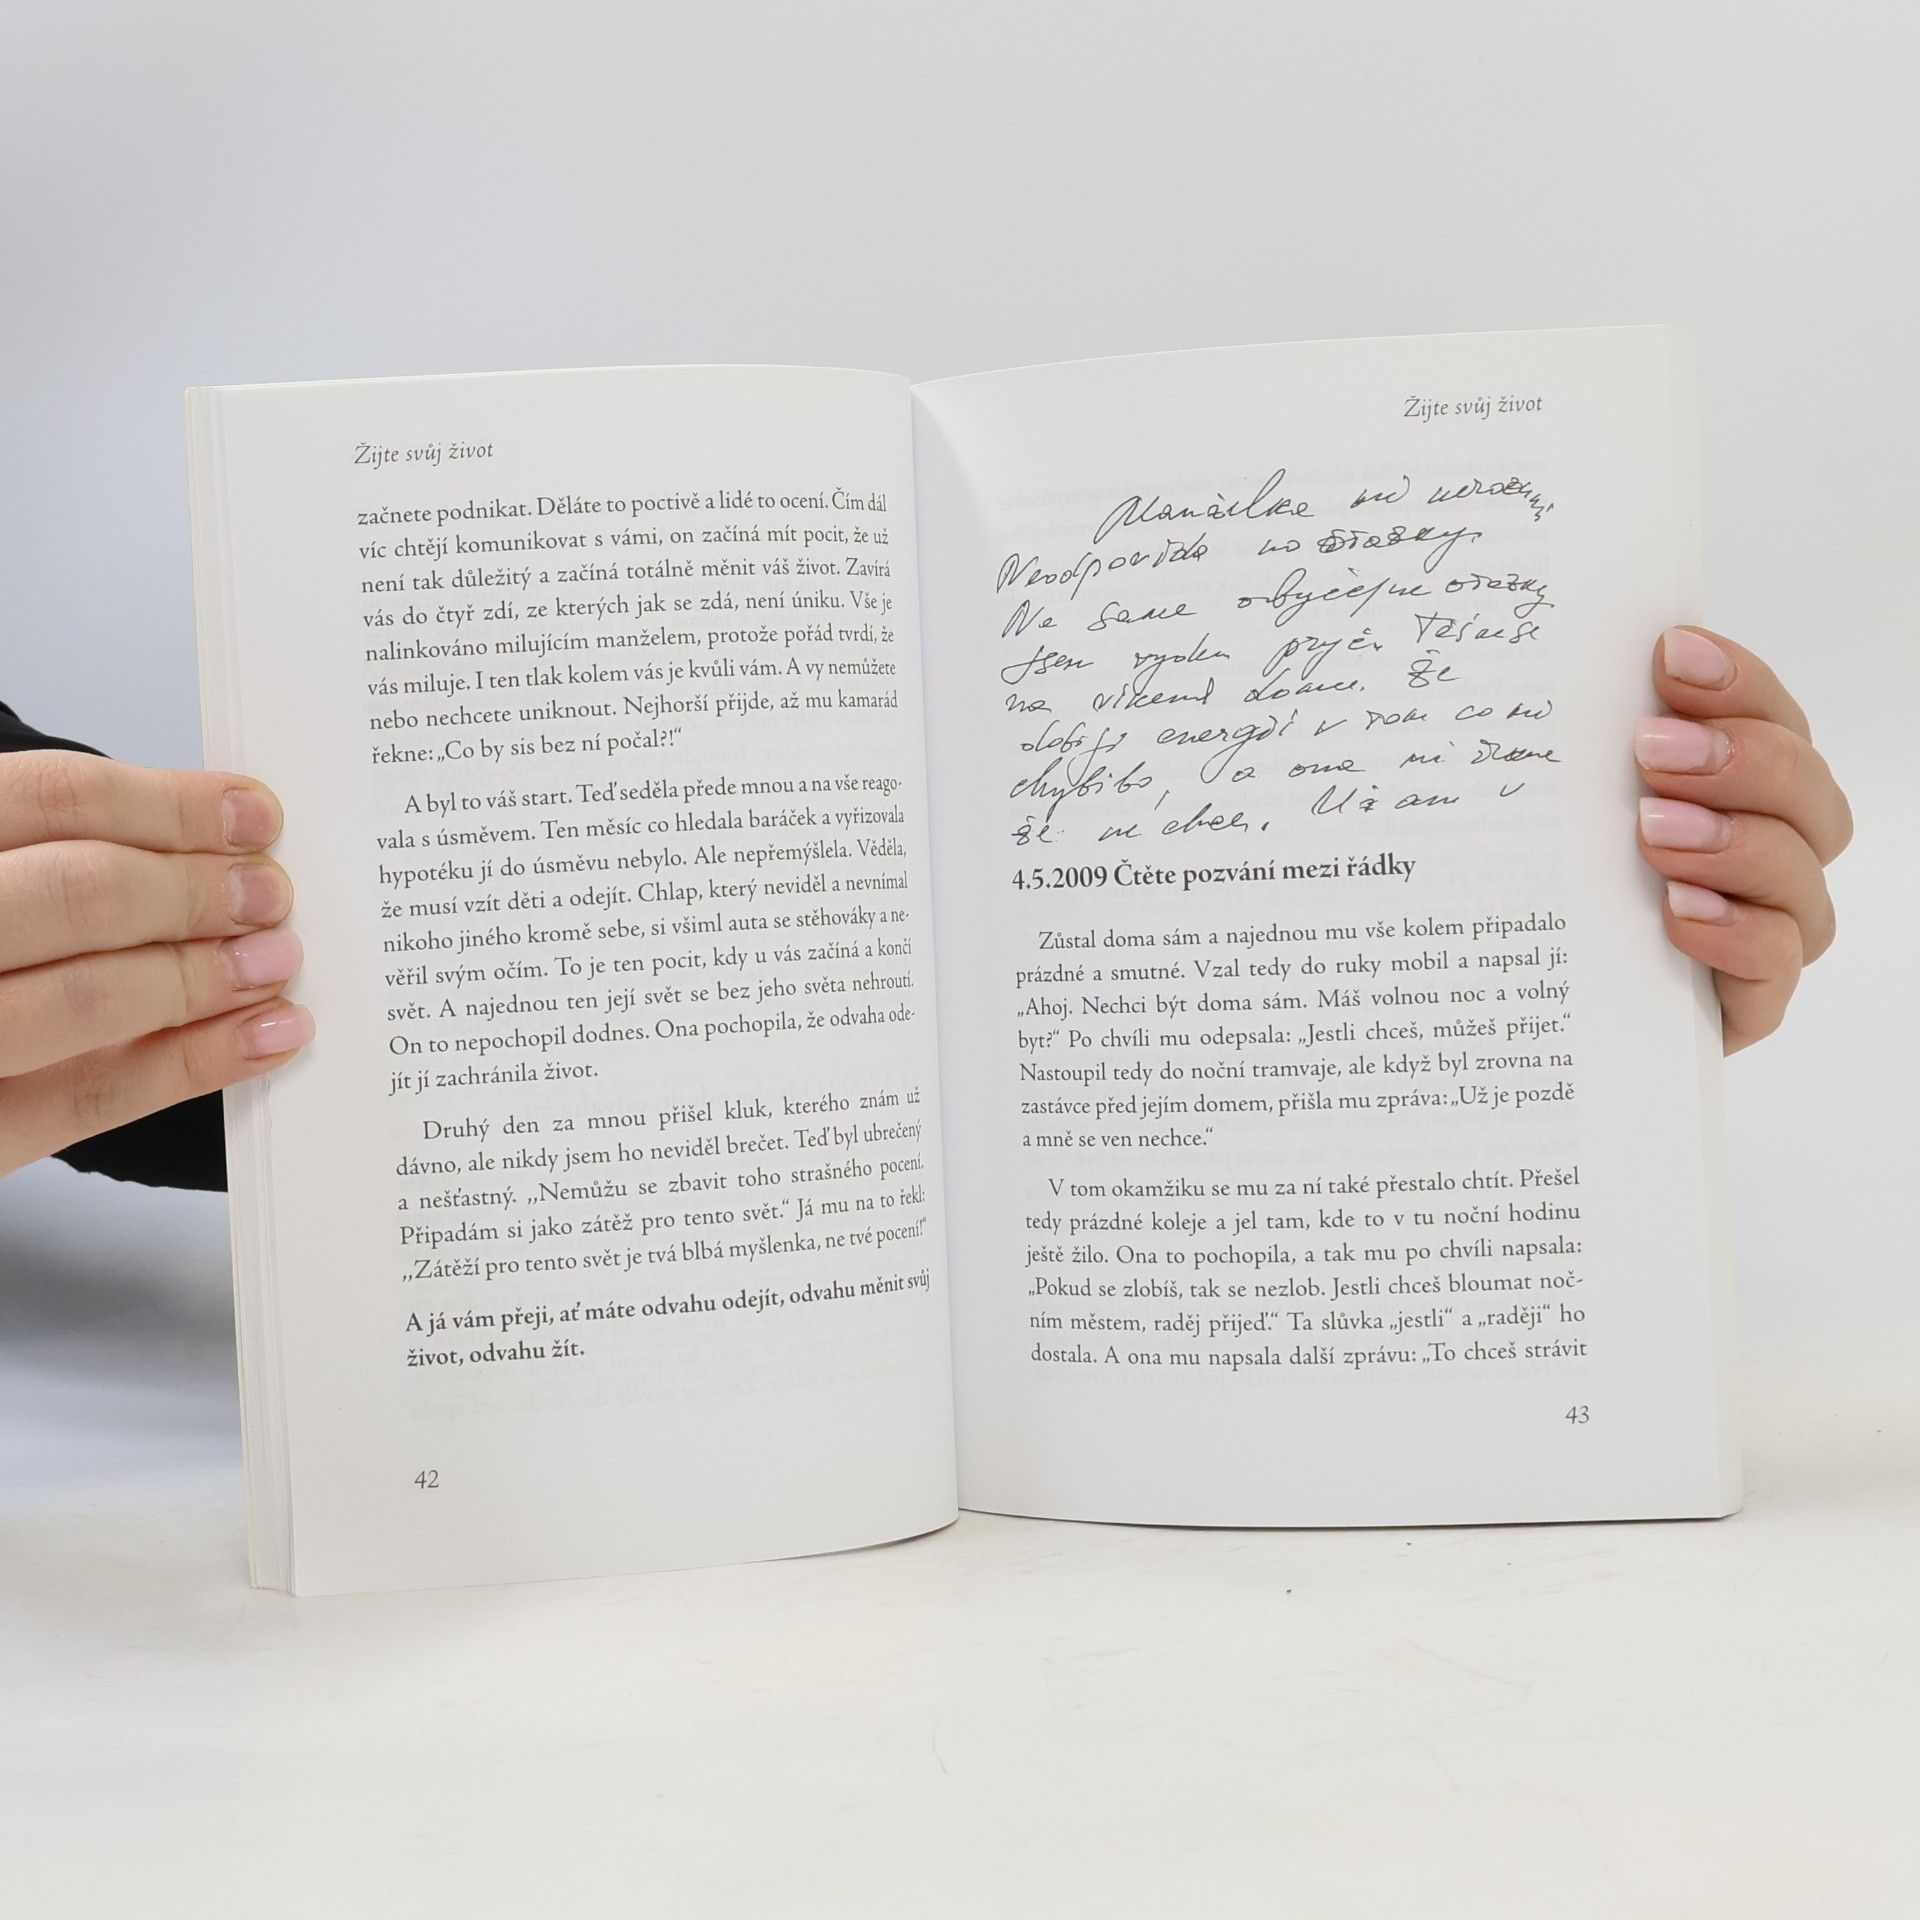 Žijte svůj život
začnete podnikat. Děláte to poctivě a lidé to ocení. Čím dál
víc chtějí komunikovat s vámi, on začíná mít pocit, že už
není tak důležitý a začíná totálně měnit váš život. Zavírá
vás do čtyř zdí, ze kterých jak se zdá, není úniku. Vše je
nalinkováno milujícím manželem, protože pořád tvrdí, že
vás miluje. I ten tlak kolem vás je kvůli vám. A vy nemůžete
nebo nechcete uniknout. Nejhorší přijde, až mu kamarád
řekne: „Co by sis bez ní počal?!“
A byl to váš start. Teď seděla přede mnou a na vše reago-
vala s úsměvem. Ten měsíc co hledala baráček a vyřizovala
hypotéku jí do úsměvu nebylo. Ale nepřemýšlela. Věděla,
že musí vzít děti a odejít. Chlap, který neviděl a nevnímal
nikoho jiného kromě sebe, si všiml auta se stěhováky a ne-
věřil svým očím. To je ten pocit, kdy u vás začíná a končí
svět. A najednou ten její svět se bez jeho světa nehroutí.
On to nepochopil dodnes. Ona pochopila, že odvaha ode-
jít jí zachránila život.
Druhý den za mnou přišel kluk, kterého znám už
dávno, ale nikdy jsem ho neviděl brečet. Teď byl ubrečený
a nešťastný. ,,Nemůžu se zbavit toho strašného pocení.
Připadám si jako zátěž pro tento svět.“ Já mu na to řekl:
,,Zátěží pro tento svět je tvá blbá myšlenka, ne tvé pocení!“
A já vám přeji, ať máte odvahu odejít, odvahu měnit svůj
život, odvahu žít.
42
Žijte svůj život
Manželka mi nerozumí
Neodpovídá na otázky.
Na obyčejné otázky
Jsem pryč. Těším se
na víkend doma. že
energii v tom co mi
chybilo, a ona mi
že nechce.
4.5.2009 Čtěte pozvání mezi řádky
Zůstal doma sám a najednou mu vše kolem připadalo
prázdné a smutné. Vzal tedy do ruky mobil a napsal jí:
„Ahoj. Nechci být doma sám. Máš volnou noc a volný
byt?“ Po chvíli mu odepsala: „Jestli chceš, můžeš přijet.“
Nastoupil tedy do noční tramvaje, ale když byl zrovna na
zastávce před jejím domem, přišla mu zpráva: „Už je pozdě
a mně se ven nechce.“
V tom okamžiku se mu za ní také přestalo chtít. Přešel
tedy prázdné koleje a jel tam, kde to v tu noční hodinu
ještě žilo. Ona to pochopila, a tak mu po chvíli napsala:
„Pokud se zlobíš, tak se nezlob. Jestli chceš bloumat noč-
ním městem, raděj přijeď.“ Ta slůvka „jestli“ a „raději“ ho
dostala. A ona mu napsala další zprávu: „To chceš strávit
43